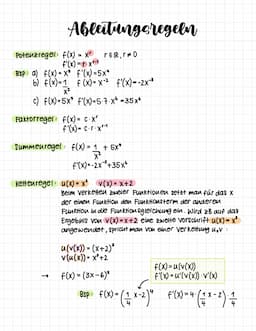 Ableitungsregeln
Potenzregel: f(x) = xʳ r∈ℝ, r≠0
f'(x) = r·xʳ⁻¹
Bsp a) f(x) = x⁵ f'(x) = 5x⁴
b) f(x) = 1/x² f(x) = x⁻² f'(x) = -2x⁻³
c) f(x) = 5x⁷ f'(x) = 5·7·x⁶ = 35x⁶
Faktorregel: f(x) = c·xʳ
f'(x) = c·r·xʳ⁻¹
Summenregel: f(x) = 1/x² + 5x⁷
f'(x) = -2x⁻³ + 35x⁶
Kettenregel: v(x) = x+2
Beim Verketten zweier Funktionen setzt man für das x
der einen Funktion den Funktionsterm der anderen
Funktion in die Funktionsgleichung ein. Wird zB auf das
Ergebnis von v(x) = x+2 eine zweite Vorschrift
angewendet, spricht man von einer Verkettung u∘v:
→ f(x) = u(v(x))
f'(x) = u'(v(x))·v'(x)
Bsp f(x) = (1/4 x - 2)⁴ f'(x) = 4·(1/4 x - 2)³·1/4